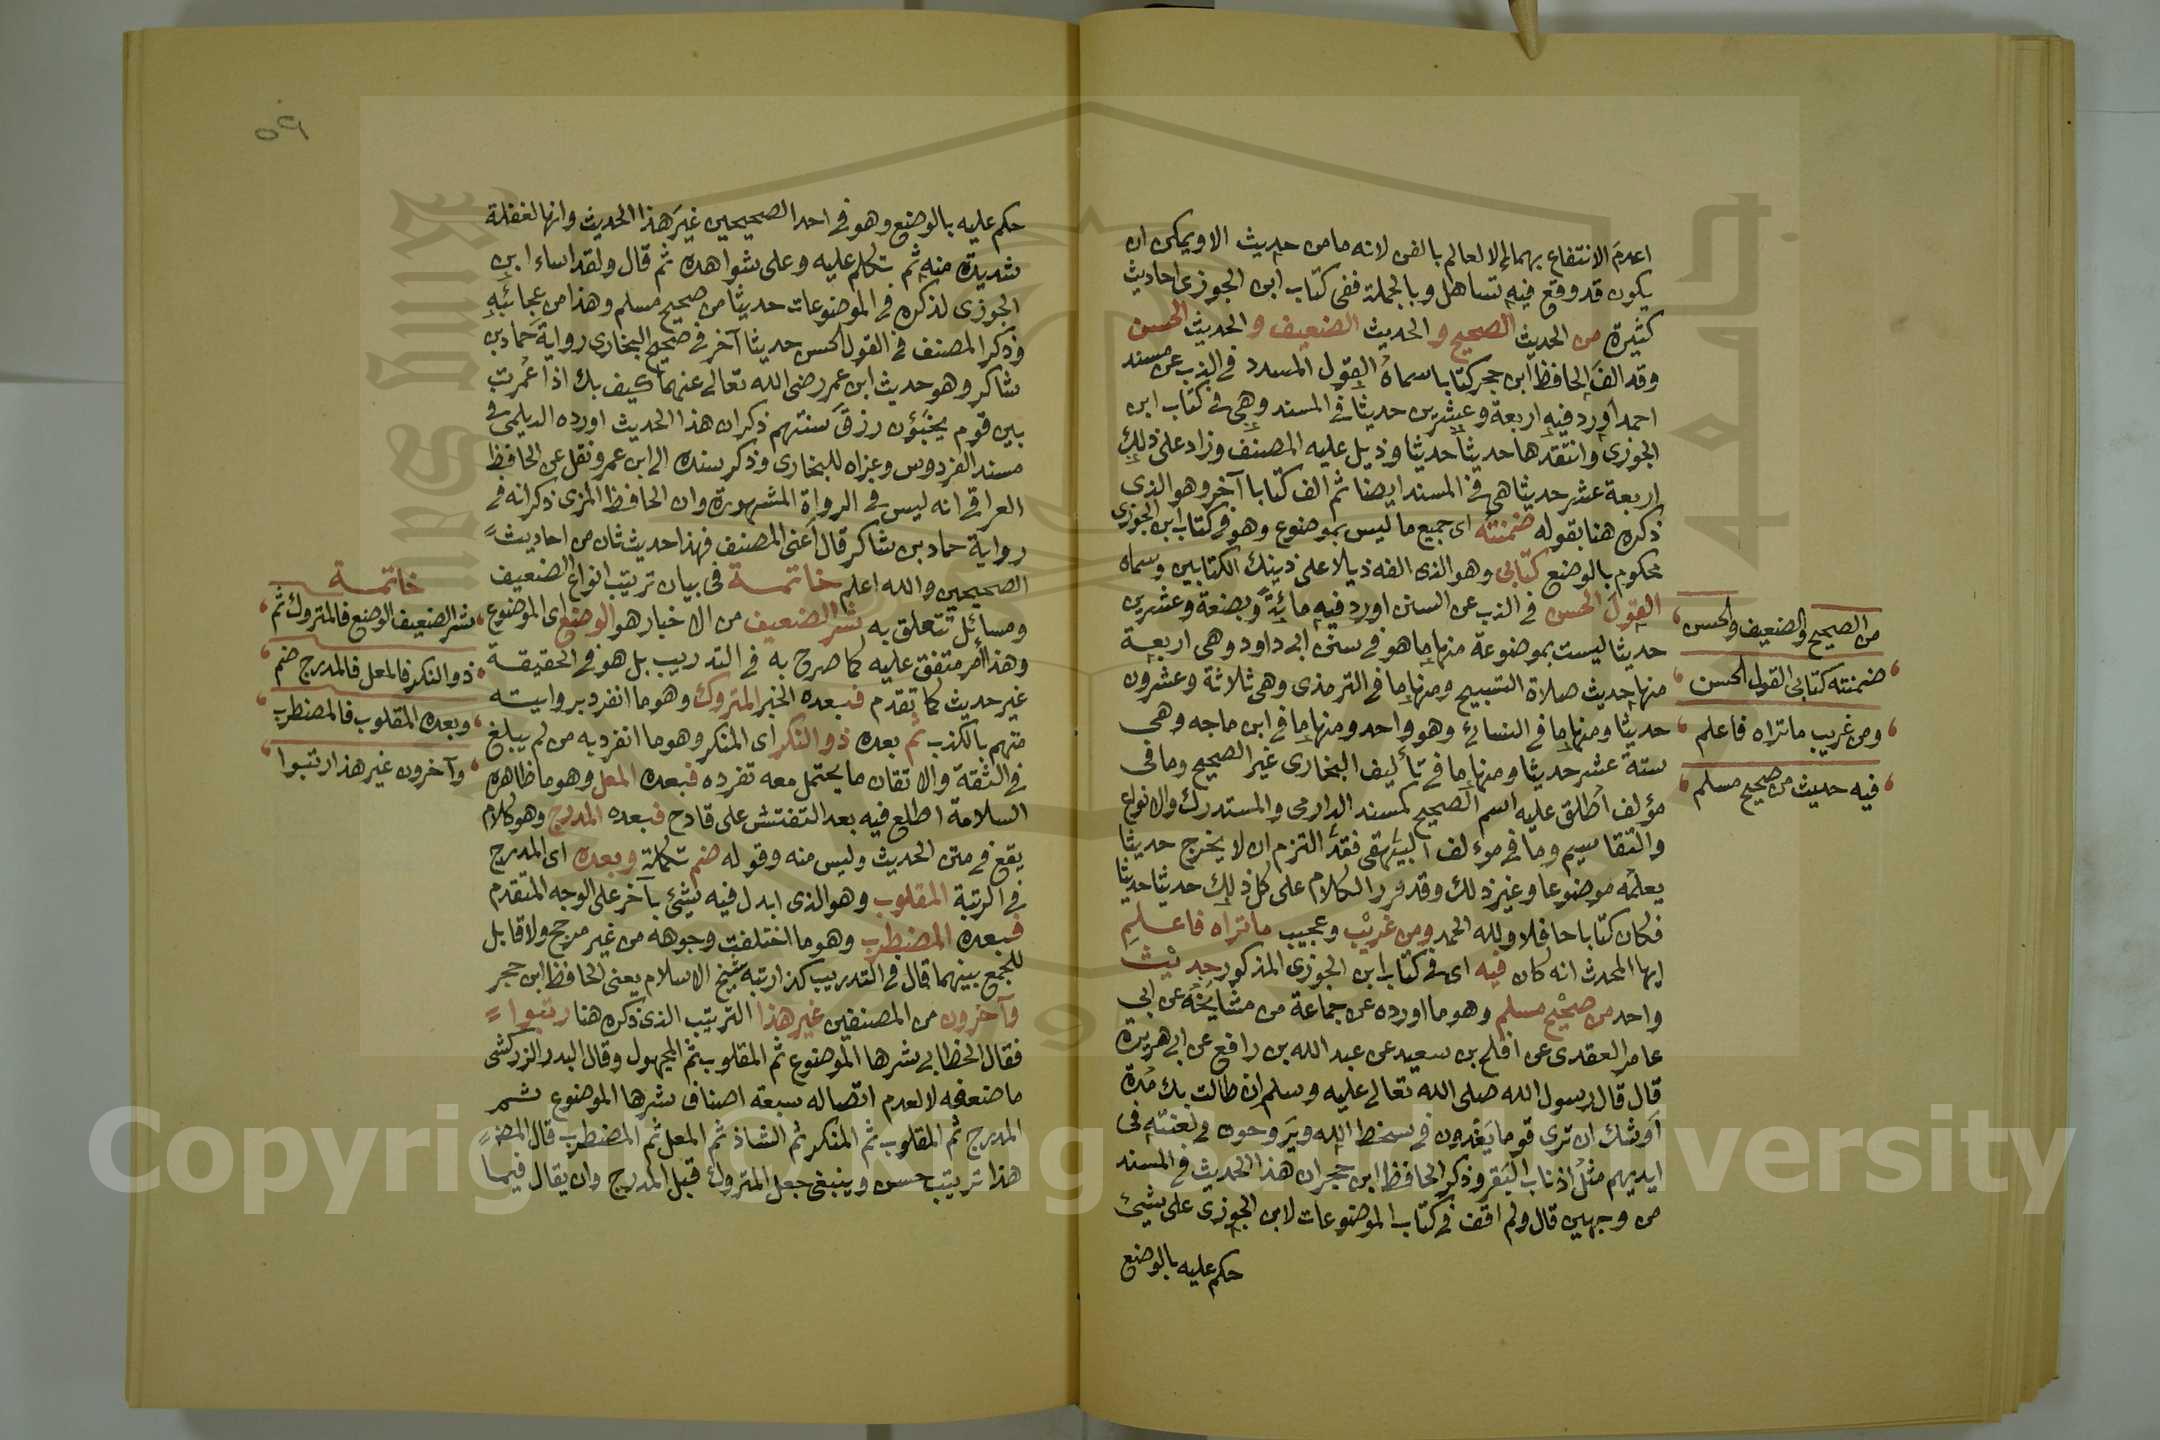 اعدمَ الانتفاع بهما إلا لعالم بالفن لانه ما من حديث الا ويمكن ان
يكون قد وقع فيه تساهل وبالجملة ففى كتاب ابن الجوزى احاديث
كثيرة من الحديث الصحيح والحديث الضعيف والحديث الحسن
وقد الفَ الحافظ ابن حجر كتابا سماهُ القول المسدد فى الذب عن مسند
احمد اورد فيه اربعة وعشرين حديثا فى المسند وهى فى كتاب ابن
الجوزى وانتقدها حديثا حديثا وذيل عليه المصنف وزاد على ذلك
اربعة عشر حديثا هى فى المسند ايضا ثم الف كتابا آخر وهو الذى
ذكره هنا بقوله ضمنته اى جميع ما ليس بموضوع وهو فى كتاب ابن الجوزى
محكوم بالوضع كتابى وهو الذى الفه ذيلا على ذينك الكتابين وسماه
القولَ الحسن فى الذب عن السنن اورد فيه مائةً وبضعة وعشرين
حديثا ليست بموضوعة منها ما هو فى سنن ابى داود وهى اربعة
منها حديث صلاة التسبيح ومنها ما فى الترمذى وهى ثلاثة وعشرون
حديثا ومنها ما فى النسائى وهو واحد ومنها ما فى ابن ماجه وهى
ستة عشر حديثا ومنها ما فى تأليف البخارى غير الصحيح وما فى
مؤلف أطلق عليه اسم الصحيح كمسند الدارمى والمستدرك والانواع
والتقاسيم وما فى مؤلف البيهقى فقد التزم ان لا يخرج حديثا
يعلمُه موضوعا وغير ذلك وقد حرر الكلام على كل ذلك حديثا حديثا
فكان كتابا حافلا ولله الحمد ومن غريب وعجيب ما تراه فاعلم
ايها المحدث انه كان فيه اى فى كتاب ابن الجوزى المذكور حديث
واحد من صحيح مسلم وهو ما اورده عن جماعة من مشايخه عن ابى
عامر العقدى عن افلح بن سعيد عن عبد الله بن رافع عن ابى هريرة
قال قال رسول الله صلى الله تعالى عليه وسلم ان طالت بك مدة
أوشك ان ترى قوما يَغدون فى سخط الله ويَروحون فى لعنته فى
ايديهم مثل اذناب البَقر وذكر الحافظ ابن حجر ان هذا الحديث فى المسند
من وجهين قال ولم اقف فى كتاب الموضوعات لابن الجوزى على شيئ
حكم عليه بالوضع
من الصحيح والضعيف والحسن
ضمنته كتابى القول الحسن
ومن غريب ما تراه فاعلم
فيه حديث من صحيح مسلم
٥٩
حكم عليه بالوضع وهو فى احد الصحيحين غيرَ هذا الحديث وانها لغفلة
شديدة منه ثم تكلم عليه وعلى شواهده ثم قال ولقد اساء ابن
الجوزى لذكره فى الموضوعات حديثا من صحيح مسلم وهذا من عجائبه
وذكر المصنف فى القول الحسن حديثا آخر فى صحيح البخارى رواية حماد بن
شاكر وهو حديث ابن عمر رضى الله تعالى عنهما كيف بك اذا عُمرت
بين قوم يخبَؤن رزقَ سنتهم ذكر ان هذا الحديث اورده الديلمى فى
مسند الفردوس وعزاه للبخارى وذكر سنده الى ابن عمر ونقل عن الحافظ
العراقى انه ليس فى الرواة المشهورة وان الحافظ المزى ذكر انه فى
رواية حماد بن شاكر قال اعنى المصنف فهذا حديث ثان من احاديث
الصحيحين والله اعلم خاتمة فى بيان ترتيب انواع الضعيف
ومسائل تتعلق به شر الضعيف من الاخبار هو الوضع اى الموضوع
وهذا أمر متفق عليه كما صرح به فى التدريب بل هو فى الحقيقة
غير حديث كما تقدم فبعده الخبر المتروك وهو ما انفرد بروايته
متهم بالكذب ثم بعده ذو النكر اى المنكر وهو ما انفرد به من لم يبلغ
فى الثقة والاتقان ما يحتمل معه تفرده فبعده المعل وهو ما ظاهره
السلامة اطلع فيه بعد التفتش على قادح فبعده المدرج وهو كلام
يقع فى متن الحديث وليس منه وقوله ضم تكملة وبعده اى المدرج
فى الرتبة المقلوب وهو الذى ابدل فيه شيئ بآخر على الوجه المتقدم
فبعده المضطرب وهو ما اختلفت وجوهه من غير مرجح ولا قابل
للجمع بينهما قال فى التدريب كذا رتبه شيخ الاسلام يعنى الحافظ ابن حجر
وآخرون من المصنفين غير هذا الترتيب الذى ذكره هنا رتبوا
فقال الخطابى شرها الموضوع ثم المقلوب ثم المجهول وقال البدر الزركشى
ما ضعفه لا لعدم اتصاله سبعة اصناف شرها الموضوع ثم
المدرج ثم المقلوب ثم المنكر ثم الشاذ ثم المعل ثم المضطرب قال المص
هذا ترتيب حسن وينبغى جعل المتروك قبل المدرج وان يقال فيما
خاتمة
شر الضعيف الوضع فالمتروك ثم
ذو النكر فالمعل فالمدرج ضم
وبعده المقلوب فالمضطرب
وآخرون غير هذا رتبوا
Copyright © King Saud University